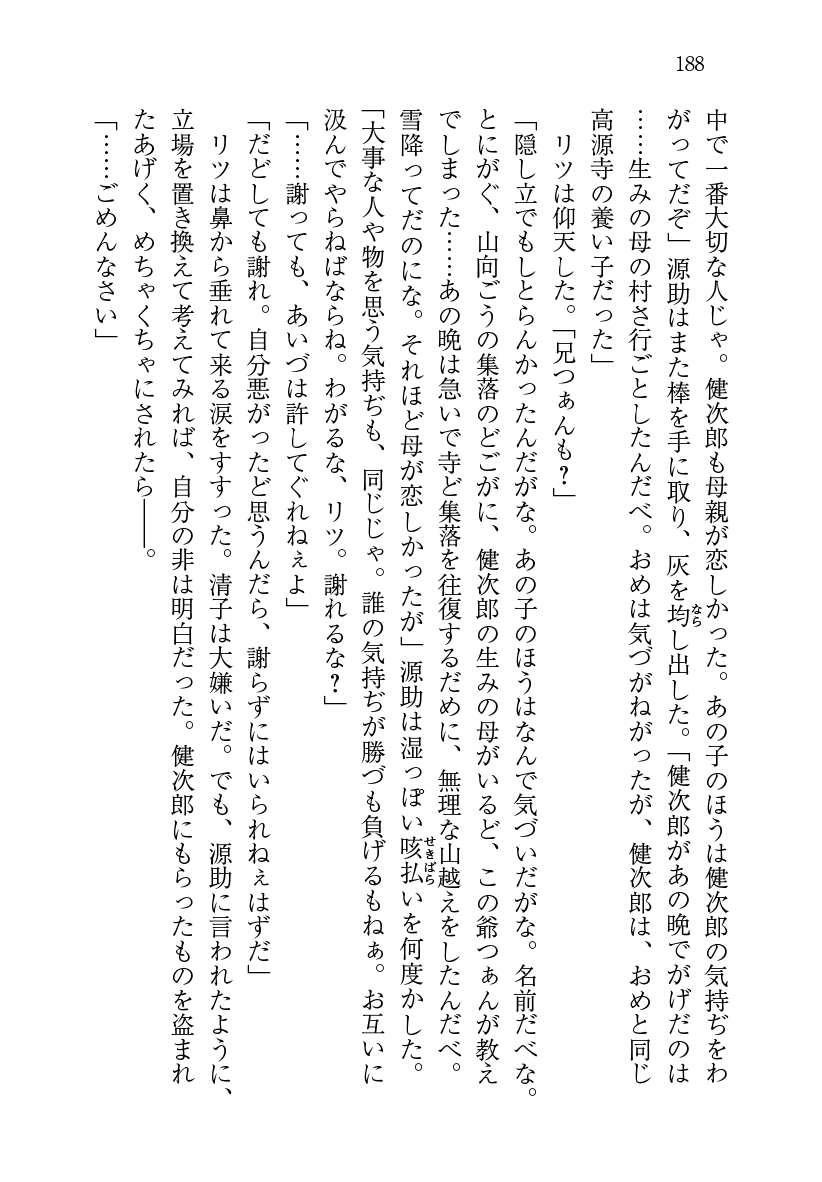 188
中で一番大切な人じゃ。健次郎も母親が恋しかった。あの子のほうは健次郎の気持ぢをわ
がってだぞ」源助はまた棒を手に取り、灰を均し出した。「健次郎があの晩でがげだのは
……生みの母の村さ行ごとしたんだべ。おめは気づがねがったが、健次郎は、おめと同じ
高源寺の養い子だった」
　リツは仰天した。「兄つぁんも？」
「隠し立でもしとらんかったんだがな。あの子のほうはなんで気づいだがな。名前だべな。
とにがぐ、山向ごうの集落のどごがに、健次郎の生みの母がいるど、この爺つぁんが教え
でしまった……あの晩は急いで寺ど集落を往復するだめに、無理な山越えをしたんだべ。
雪降ってだのにな。それほど母が恋しかったが」源助は湿っぽい咳払いを何度かした。
「大事な人や物を思う気持ぢも、同じじゃ。誰の気持ぢが勝づも負げるもねぁ。お互いに
汲んでやらねばならね。わがるな、リツ。謝れるな？」
「……謝っても、あいづは許してぐれねぇよ」
「だどしても謝れ。自分悪がったど思うんだら、謝らずにはいられねぇはずだ」
　リツは鼻から垂れて来る涙をすすった。清子は大嫌いだ。でも、源助に言われたように、
立場を置き換えて考えてみれば、自分の非は明白だった。健次郎にもらったものを盗まれ
たあげく、めちゃくちゃにされたら――。
「……ごめんなさい」